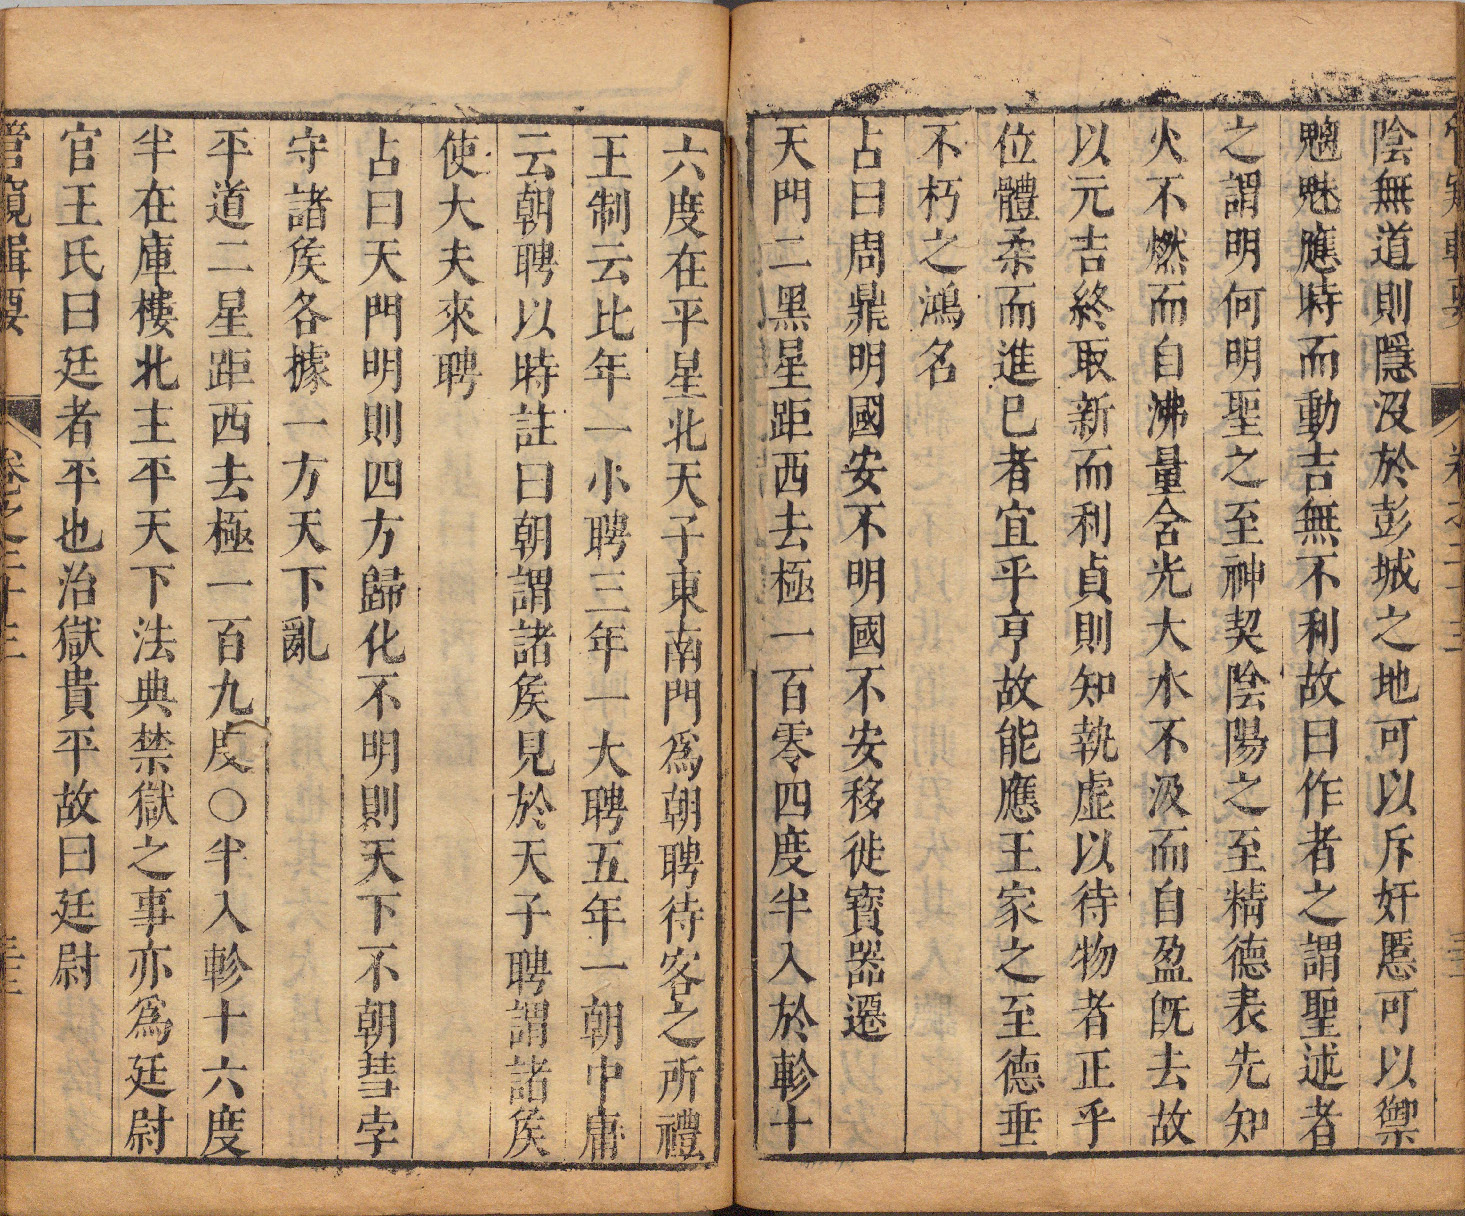 陰無道則隱汲於彭城之地可以斥奸慝可以禦
魑魅應時而動吉無不利故曰作者之謂聖述者
之謂明何明聖之至神契陰陽之至精德表先知
火不燃而自沸量含光大水不汲而自盈旣去故
以元吉終取新而利貞則知執虛以待物者正乎
位體柔而進巳者宜乎亨故能應王家之至德垂
不朽之鴻名
占曰周鼎明國安不明國不安移徙寶器遷
天門二黑星距西去極一百零四度半入於軫十
六度在平星北天子東南門爲朝聘待客之所禮
王制云比年一小聘三年一大聘五年一朝中庸
云朝聘以時註曰朝謂諸矦見於天子聘謂諸矦
使大夫來聘
占曰天門明則四方歸化不明則天下不朝彗孛
守諸矦各據一方天下亂
平道二星距西去極一百九度〇半入軫十六度
半在庫樓北主平天下法典禁獄之事亦爲廷尉
官王氏曰廷者平也治獄貴平故曰廷尉
管窺輯要
卷之三十三